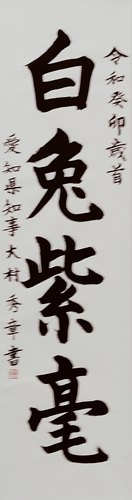 令和癸卯歳首
白兎紫毫
愛知県知事大村秀章書